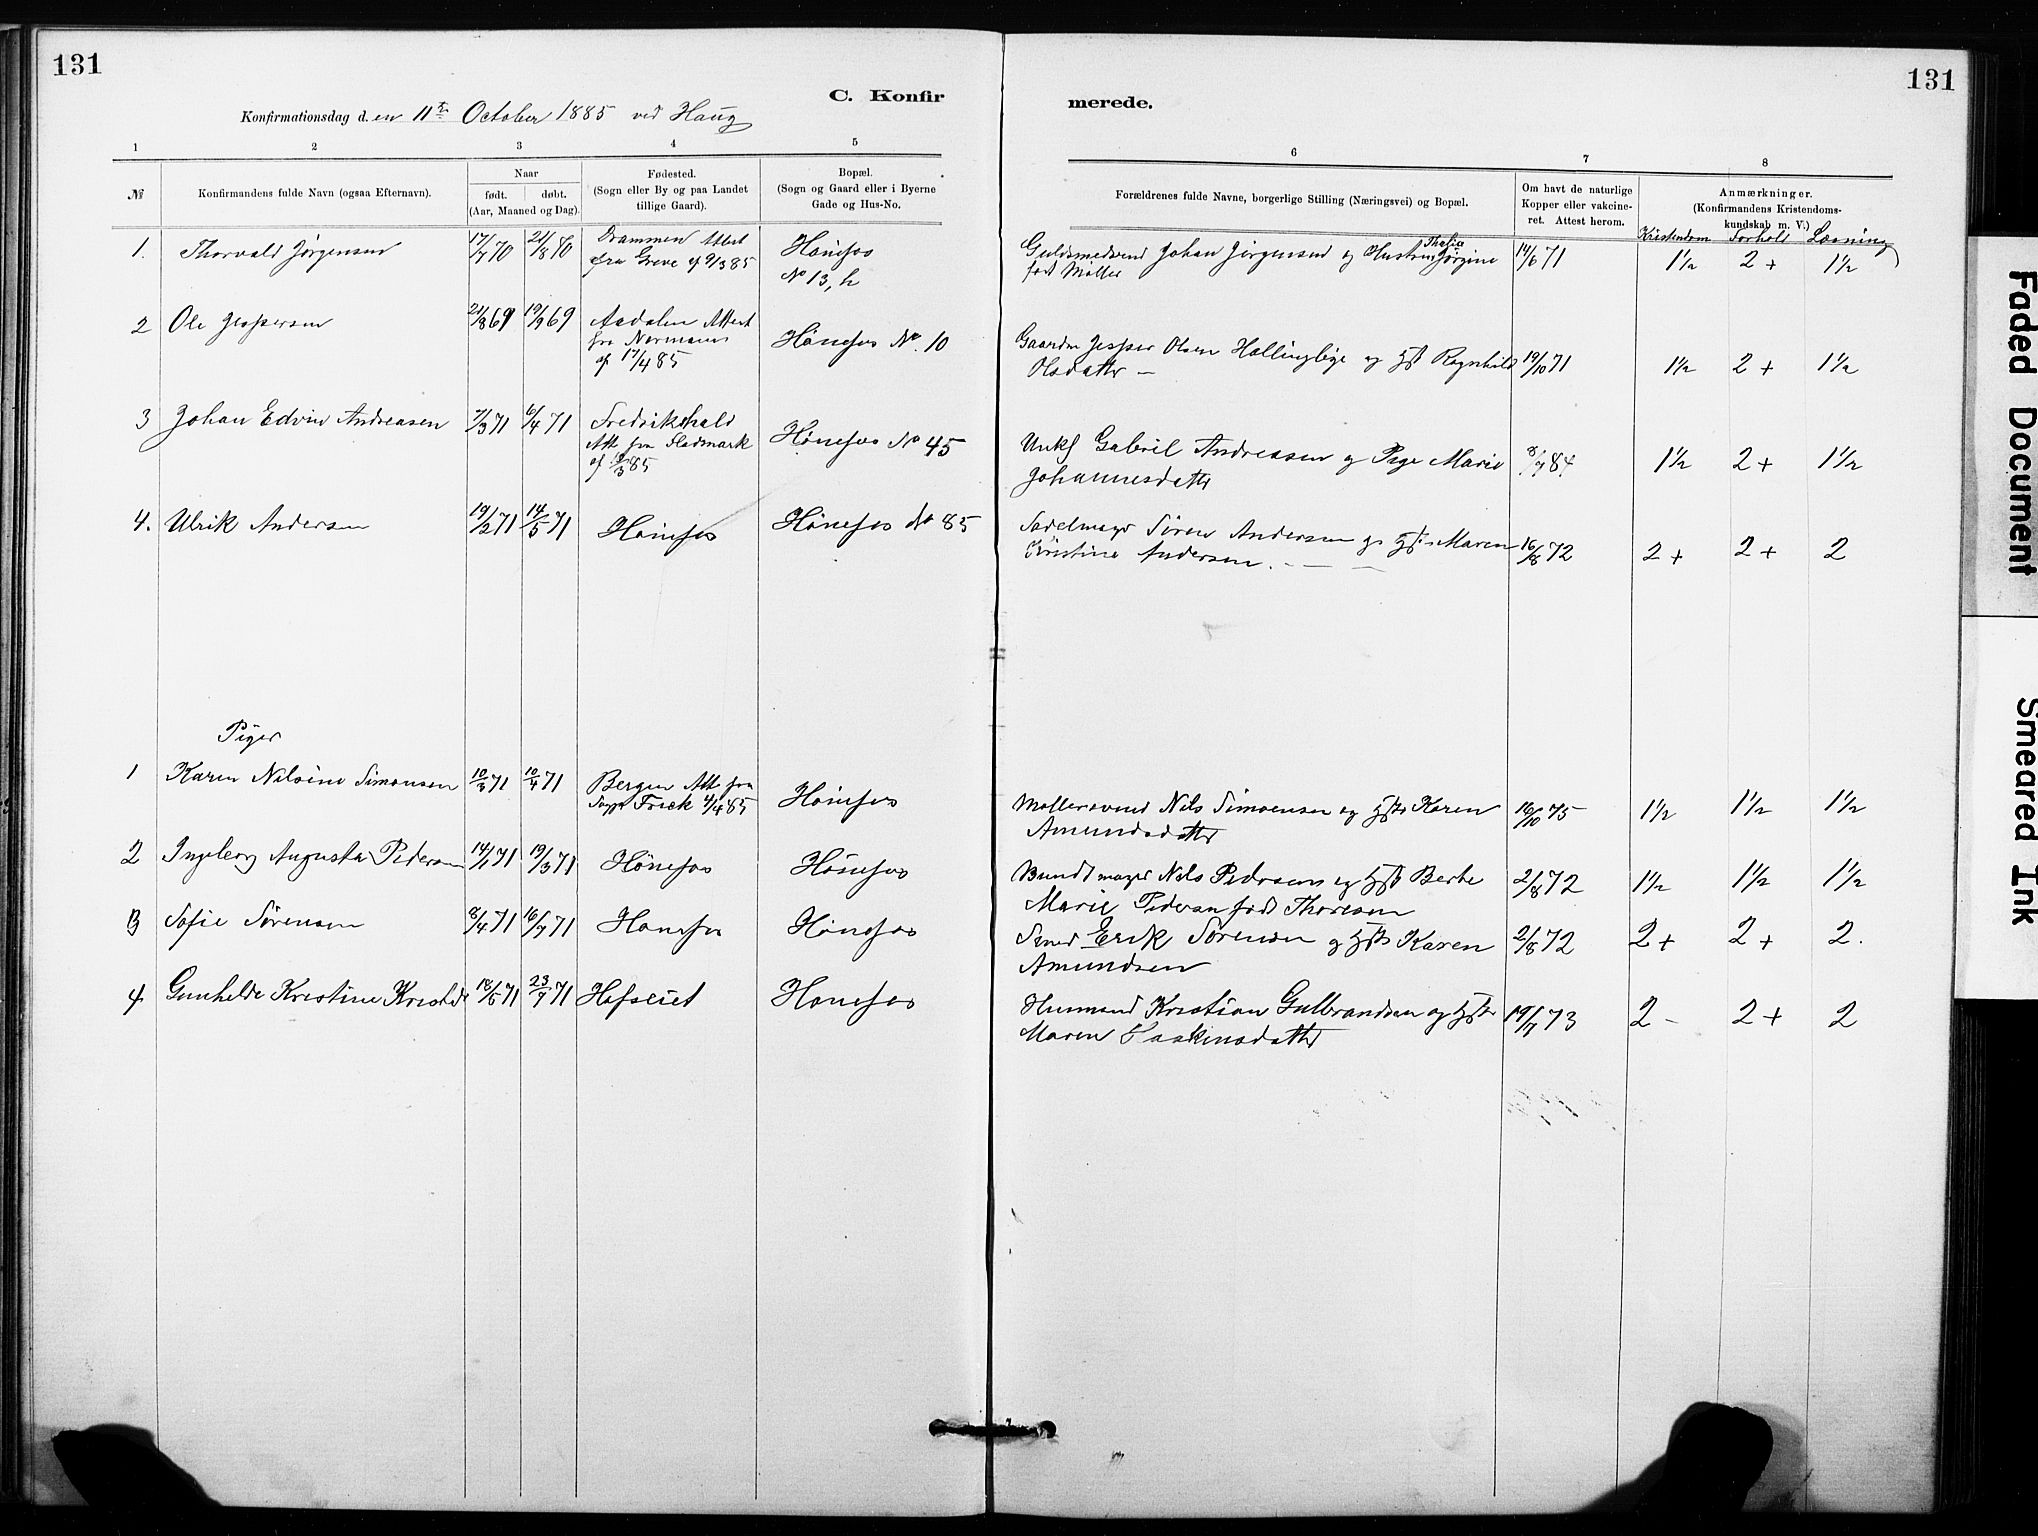 131
131
C. Konfir
merede.
Konfirmationsdag d. en 11te October 1885 ved Haug
1 2 3 4 5 6 7 8
№
Konfirmandens fulde Navn (ogsaa Efternavn).
Naar
født. døbt.
(Aar, Maaned og Dag).
Fødested.
(Sogn eller By og paa Landet
tillige Gaard).
Bopæl.
(Sogn og Gaard eller i Byerne
Gade og Hus-No.
Forældrenes fulde Navne, borgerlige Stilling (Næringsvei) og Bopæl.
Om havt de naturlige
Kopper eller vakcine-
ret. Attest herom.
Anmærkninger.
(Konfirmandens Kristendoms-
kundskab m. V.)
Kristendom Forhold Læsning
1. Thorvald Jörgensen 17/7 70 21/8 80
Drammen Attest
fra Greve af 9/3 85
Hönefos
No 13, h
Guldsmedsvend Johan Jörgensen og Hustru Thalia Jörgine
født Møller
14/6 71 1½ 2+ 1½
2 Ole Jespersen 21/8 69 19/9 69
Aadalen Attest
fra Normann
af 17/4 85
Hönefos No. 10
Gaardm Jesper Olsen Hallinglige og Hst Ragnhild
Olsdatter —
19/10 71 1½ 2+ 1½
3 Johan Edvin Andreasen 7/3 71 6/4 71
Fredrikshald
Att. fra Sladmark
af 19/3 85
Hönefos No 45
Unkf Gabriel Andreasen og Pige Marie
Johannesdattr
8/7 84 1½ 2+ 1½
4. Ulrik Andersen 19/2 71 14/5 71
Hönefos
Hönefos No 85
Sadelmager Sören Andersen og Hst. Maren
Kristine Andersen. — — —
16/8 72 2+ 2+ 2
Piger
1 Karen Nilsine Simonsen 10/3 71 10/4 71
Bergen Att. fra
Sogpr Frick 4/4 85
Hönefos
Møllersvend Nils Simonsen og Hst Karen
Amundsdattr
16/10 75 1½ 1½ 1½
2 Ingeborg Augusta Pedersen 14/1 71 19/3 71
Hönefos
Hönefos
Bundtmager Nils Pedersen og Hst Berthe
Marie Pedersen født Thoresen
2/8 72 1½ 1½ 1½
3 Sofie Sørensen 8/4 71 16/7 71
Hønefos
Hønefos
Smed Erik Sørensen og Hst Karen
Amundsen
2/8 72 2+ 2+ 2.
4 Gunhilde Kristine Kristds 18/5 71 23/7 71
Hofseiet
Hønefos
Husmand Kristian Gulbrandsen og Hst
Maren Haakensdattr
19/7 73 2- 2+ 2
Faded Document
Smeared Ink